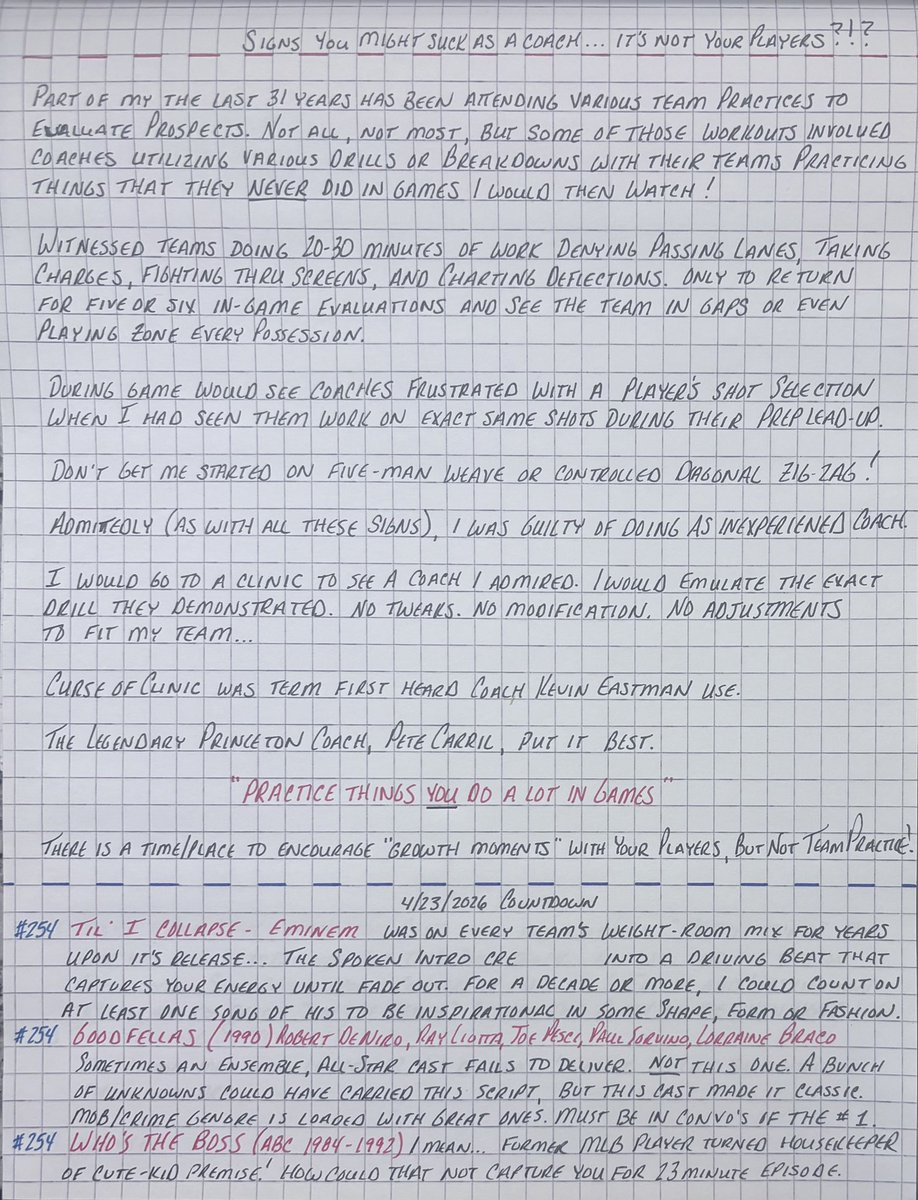 SIGNS YOU MIGHT SUCK AS A COACH... IT'S NOT YOUR PLAYERS?!?
PART OF MY THE LAST 31 YEARS HAS BEEN ATTENDING VARIOUS TEAM PRACTICES TO
EVALUATE PROSPECTS. NOT ALL, NOT MOST, BUT SOME OF THOSE WORKOUTS INVOLVED
COACHES UTILIZING VARIOUS DRILLS OR BREAKDOWNS WITH THEIR TEAMS PRACTICING
THINGS THAT THEY NEVER DID IN GAMES I WOULD THEN WATCH!
WITNESSED TEAMS DOING 20-30 MINUTES OF WORK DENYING PASSING LANES, TAKING
CHARGES, FIGHTING THRU SCREENS, AND CHARTING DEFLECTIONS. ONLY TO RETURN
FOR FIVE OR SIX IN-GAME EVALUATIONS AND SEE THE TEAM IN GAPS OR EVEN
PLAYING ZONE EVERY POSSESSION.
DURING GAME WOULD SEE COACHES FRUSTRATED WITH A PLAYER'S SHOT SELECTION
WHEN I HAD SEEN THEM WORK ON EXACT SAME SHOTS DURING THEIR PREP LEAD-UP.
DON'T GET ME STARTED ON FIVE-MAN WEAVE OR CONTROLLED DIAGONAL ZIG-ZAG!
ADMITEDLY (AS WITH ALL THESE SIGNS), I WAS GUILTY OF DOING AS INEXPERIENED COACH.
I WOULD GO TO A CLINIC TO SEE A COACH I ADMIRED. I WOULD EMULATE THE EXACT
DRILL THEY DEMONSTRATED. NO TWEAKS. NO MODIFICATION. NO ADJUSTMENTS
TO FIT MY TEAM...
CURSE OF CLINIC WAS TERM FIRST HEARD COACH KEVIN EASTMAN USE.
THE LEGENDARY PRINCETON COACH, PETE CARRIL, PUT IT BEST.
"PRACTICE THINGS YOU DO A LOT IN GAMES"
THERE IS A TIME/PLACE TO ENCOURAGE "GROWTH MOMENTS" WITH YOUR PLAYERS, BUT NOT TEAM PRACTICE!
4/23/2026 COUNTDOWN
#254 TIL' I COLLAPSE - EMINEM WAS ON EVERY TEAM'S WEIGHT-ROOM MIX FOR YEARS
UPON IT'S RELEASE... THE SPOKEN INTRO CRE INTO A DRIVING BEAT THAT
CAPTURES YOUR ENERGY UNTIL FADE OUT. FOR A DECADE OR MORE, I COULD COUNT ON
AT LEAST ONE SONG OF HIS TO BE INSPIRATIONAL IN SOME SHAPE, FORM OR FASHION.
#254 GOODFELLAS (1990) ROBERT DENIRO, RAY LIOTTA, JOE PESCI, PAUL SORVINO, LORRAINE BRACO
SOMETIMES AN ENSEMBLE, ALL-STAR CAST FAILS TO DELIVER. NOT THIS ONE. A BUNCH
OF UNKNOWNS COULD HAVE CARRIED THIS SCRIPT, BUT THIS CAST MADE IT CLASSIC.
MOB/CRIME GENDRE IS LOADED WITH GREAT ONES. MUST BE IN CONVO'S IF THE #1.
#254 WHO'S THE BOSS (ABC 1984-1992) I MEAN... FORMER MLB PLAYER TURNED HOUSEKEEPER
OF CUTE-KID PREMISE! HOW COULD THAT NOT CAPTURE YOU FOR 23 MINUTE EPISODE.